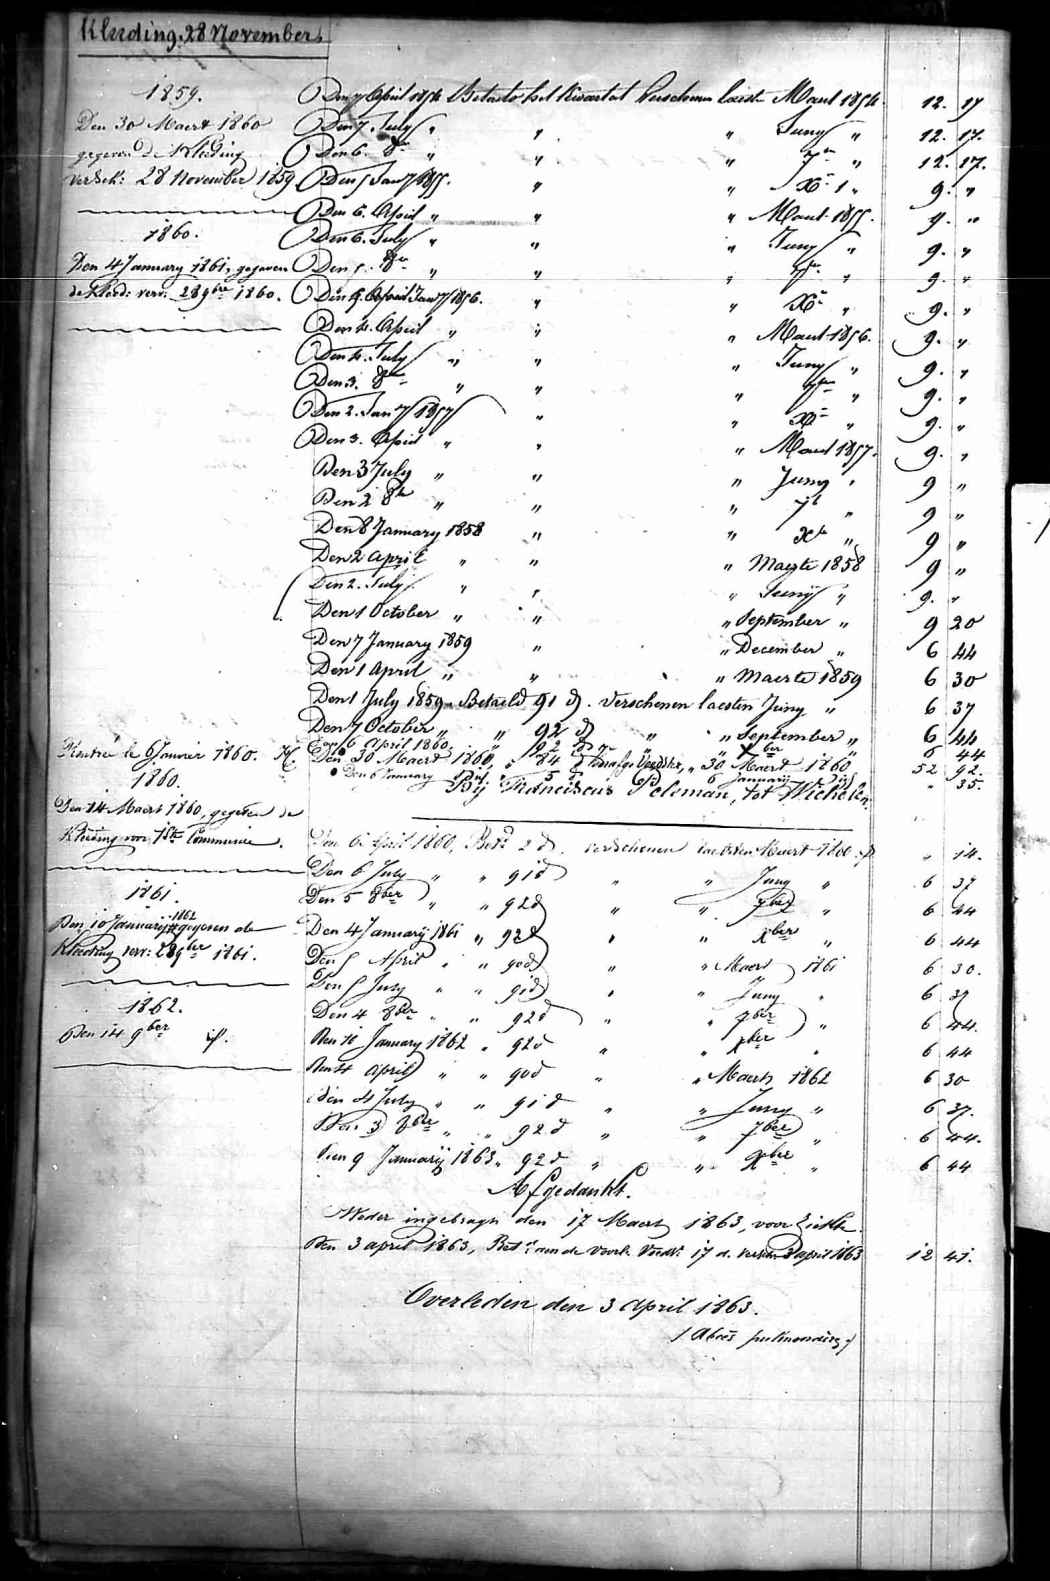 Kleeding. 28 November.
1859.
Den 30 Maert 1860
gegeven de Kleeding
versch: 28 November 1859
1860.
Den 4 January 1861, gegeven
de Kleed: verv: 28 9bre 1860.
Rentré le 6 Janvier 1860.
1860.
Den 14 Maert 1860, gegeven de
Kleeding voor 1ste Communie.
1861.
Den 10 January 1862 gegeven de
Kleeding verv: 28 9ber 1861.
1862.
Den 14 9ber id.
Den 7 April 1854 Betaeld het Kwartal verschenen laest Maert 1854. 12. 17
Den 7. July " " " Juny " 12. 17.
Den 6. 8er " " " 7er " 12. 17.
Den 5 Jany 1855. " " Xr " 9. "
Den 6. April " " " Maert 1855. 9. "
Den 6. July " " " Juny " 9. "
Den 5. 8er " " " 7er " 9. "
Den 4. Jany 1856. " " Xr " 9. "
Den 4. April " " " Maert 1856. 9. "
Den 4. July " " " Juny " 9. "
Den 3. 8er " " " 7er " 9. "
Den 2. Jany 1857 " " Xr " 9. "
Den 3. April " " " Maert 1857. 9. "
Den 3 July " " " Juny " 9 "
Den 2 8br " " " 7br " 9 "
Den 8 January 1858 " " Xbr " 9 "
Den 2 April " " " Maerte 1858 9 "
Den 2. July " " " Juny " 9. "
Den 1 October " " " September " 9 20
Den 7 January 1859 " " December " 6 44
Den 1 April " " " Maerte 1859 6 30
Den 1 July 1859 " Betaeld 91 d. verschenen laesten Juny " 6 37
Den 7 October " " 92 d " " September " 6 44
Den 6 April 1860, " 92 d " " Xber " 6 44
Den 30 Maert 1860, " 84 d " 30 Maert 1860 52 92.
Den 6 January " 5 d 6 January " 35.
Bij Franciscus Poleman, tot Wichelen.
Den 6 April 1860, Betd 2 d. verschenen laetsten Maert 1860 " 14.
Den 6 July " " 91 d " " Juny " 6 37
Den 5 8ber " " 92 d " " 7ber " 6 44
Den 4 January 1861 " 92 d " " Xber " 6 44
Den 5 April " " 90 d " " Maert 1861 6 30.
Den 5 July " " 91 d " " Juny " 6 37
Den 4 8ber " " 92 d " " 7ber " 6 44.
Den 10 January 1862 " 92 d " " Xber " 6 44
Den 4 April " " 90 d " " Maert 1862 6 30
Den 4 July " " 91 d " " Juny " 6 37.
Den 3 8bre " " 92 d " " 7ber " 6 44.
Den 9 January 1863 " 92 d " " Xber " 6 44
Afgedankt.
Weder ingebragt den 17 Maert 1863, voor Ziekte.
Den 3 april 1863, Betd aan de 17 d. 3 april 1863 12 41.
Overleden den 3 April 1863.